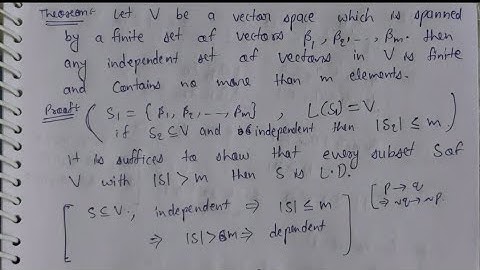 Theorem:- Let V be a vector space which is spanned
by a finite set of vectors β1, β2, ..., βm. then
any independent set of vectors in V is finite
and contains no more than m elements.
Proof:- ( S1 = {β1, β2, ..., βm} , L(S1) = V
if S2 ⊆ V and independent then |S2| ≤ m )
it is suffices to show that every subset S of
V with |S| > m then S is L.D.
[ S ⊆ V, independent ⇒ |S| ≤ m [ p → q
⇒ |S| > m ⇒ dependent ] ⇒ ~q → ~p.